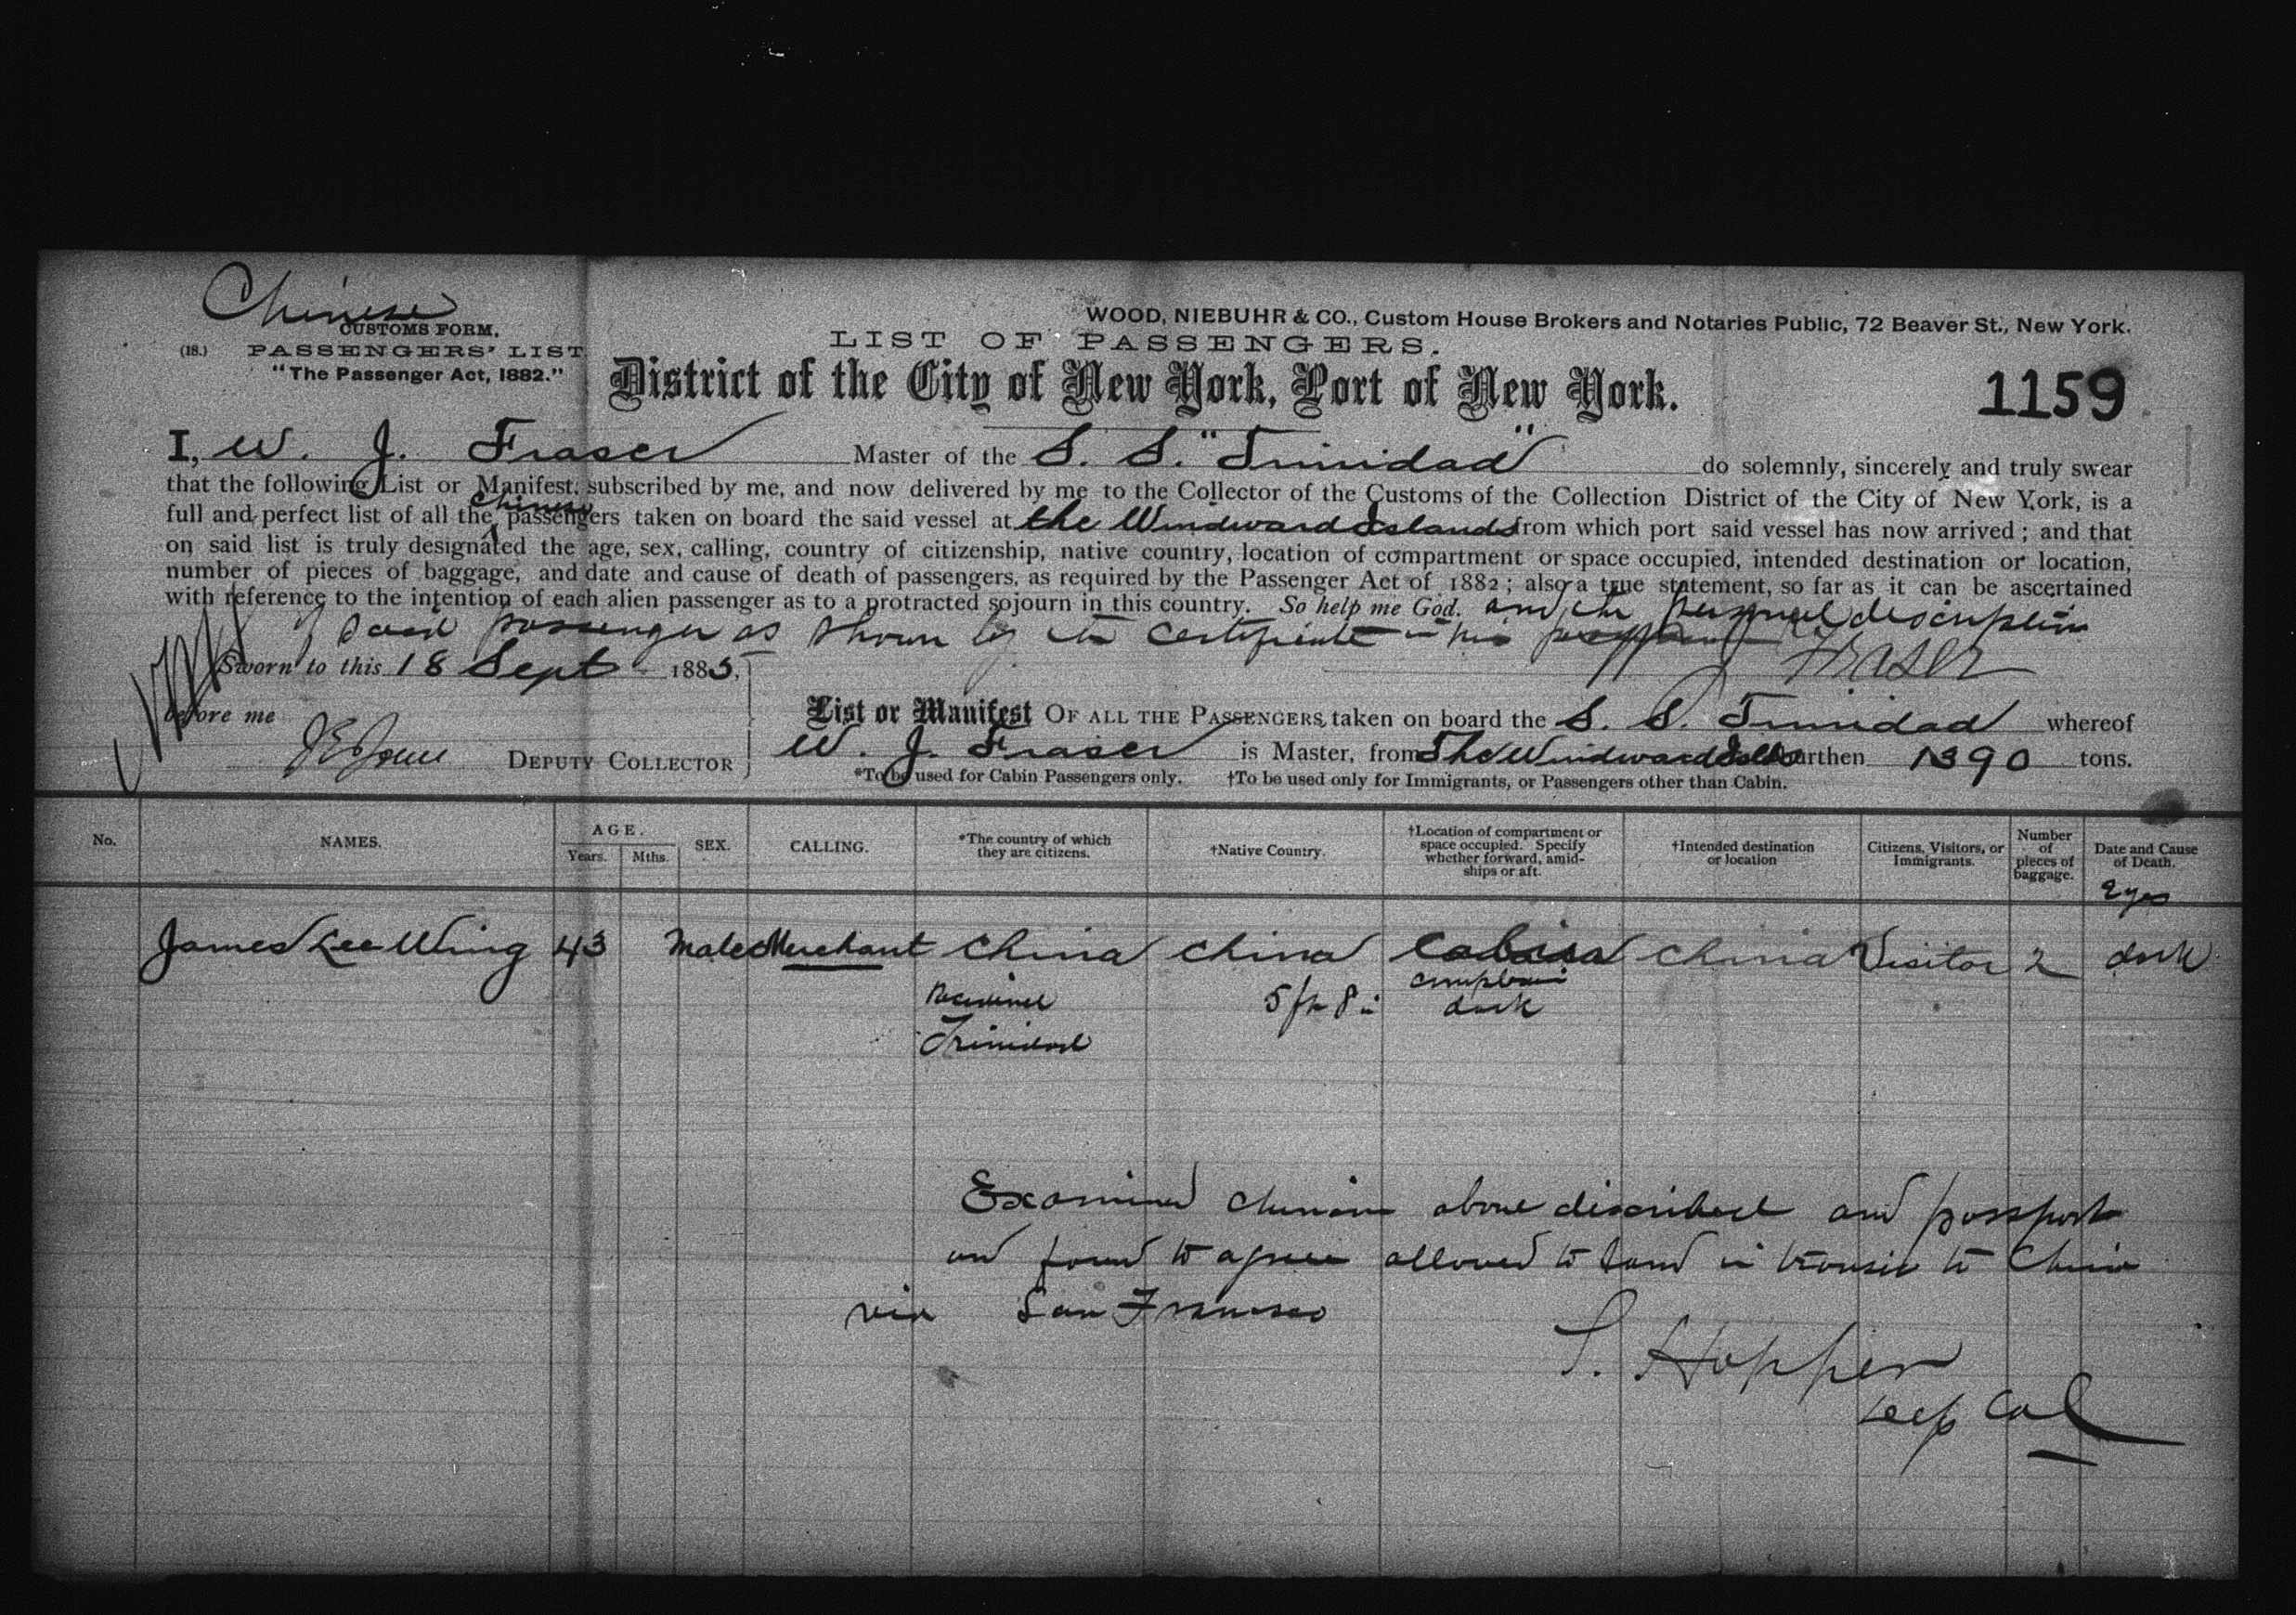 Chinese
CUSTOMS FORM.
(18.) PASSENGERS' LIST.
"The Passenger Act, 1882."
WOOD, NIEBUHR & CO., Custom House Brokers and Notaries Public, 72 Beaver St., New York.
LIST OF PASSENGERS.
District of the City of New York, Port of New York.
1159
I, W. J. Fraser Master of the S. S. "Trinidad" do solemnly, sincerely and truly swear
that the following List or Manifest, subscribed by me, and now delivered by me to the Collector of the Customs of the Collection District of the City of New York, is a
full and perfect list of all the Chinese passengers taken on board the said vessel at the Windward Islands from which port said vessel has now arrived; and that
on said list is truly designated the age, sex, calling, country of citizenship, native country, location of compartment or space occupied, intended destination or location,
number of pieces of baggage, and date and cause of death of passengers, as required by the Passenger Act of 1882; also a true statement, so far as it can be ascertained
with reference to the intention of each alien passenger as to a protracted sojourn in this country. So help me God. and the personal description
of said passenger as shown by the certificate in his
Sworn to this 18 Sept 1885,
W J Fraser
before me
DEPUTY COLLECTOR
List or Manifest OF ALL THE PASSENGERS taken on board the S. S. Trinidad whereof
W. J. Fraser is Master, from The Windward Islds burthen 1390 tons.
*To be used for Cabin Passengers only. †To be used only for Immigrants, or Passengers other than Cabin.
No. NAMES. AGE. Years. Mths. SEX. CALLING. *The country of which they are citizens. †Native Country. †Location of compartment or space occupied. Specify whether forward, amid-ships or aft. †Intended destination or location Citizens, Visitors, or Immigrants. Number of pieces of baggage. Date and Cause of Death.
Eyes
James Lee Wing 43 Male Merchant China China Cabin China Visitor 2 dark
5 ft 8 in complexion
dark
Trinidad
Examined chinaman above described and passport
and found to agree allowed to land in transit to China
via San Francisco
S. Hopper
Dep Col